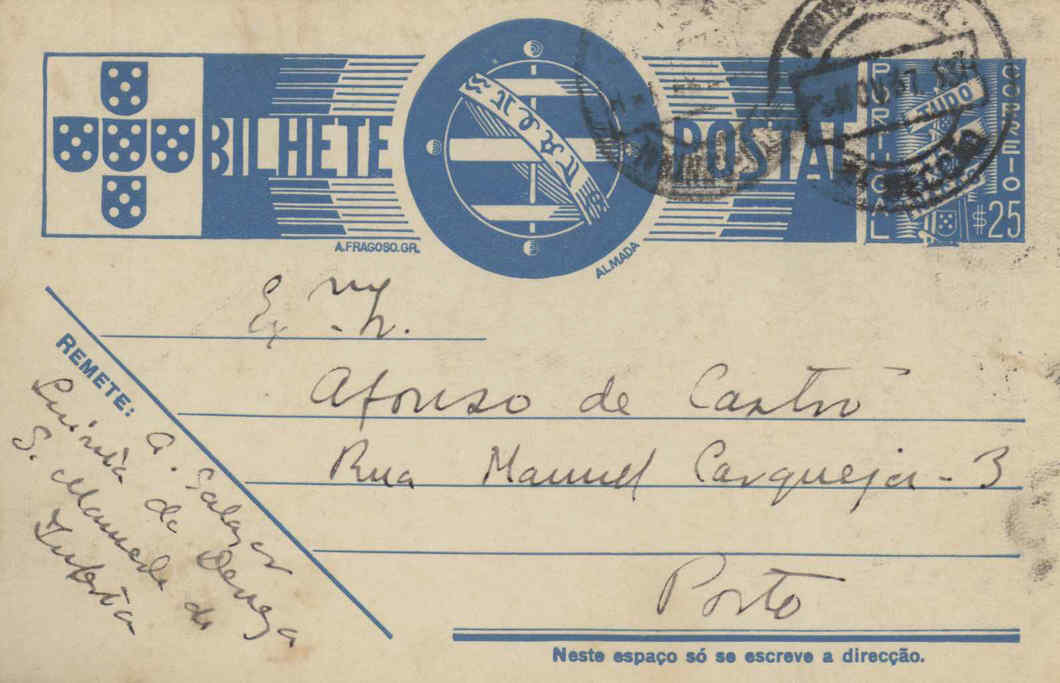 BILHETE POSTAL
PORTUGAL
CORREIO
TUDO
$25
A.FRAGOSO.GR.
ALMADA
Ex.
Afonso de Castro
Rua Manuel Carqueja - 3
Porto
REMETE:
A. Salazar
Quinta da Deveza
S. Mamede de
Infesta
Neste espaço só se escreve a direcção.